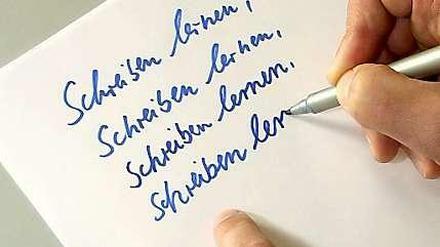 Schreiben lernen,
Schreiben lernen,
Schreiben lernen,
Schreiben ler